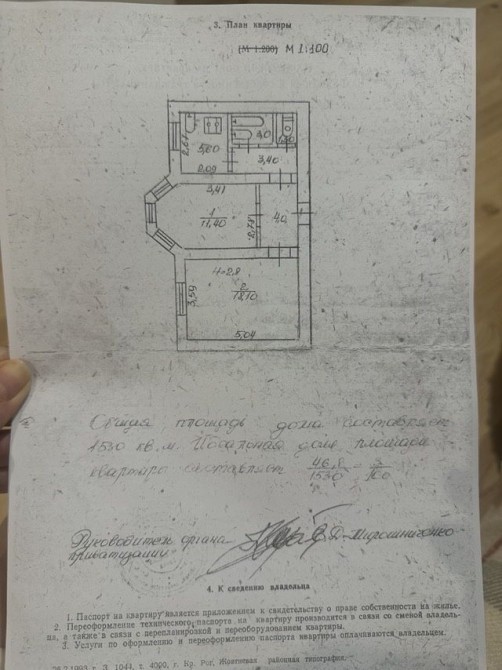 3. План квартиры
(М 1:200) М 1:100
2.67
5,60
3,0
3,40
2.09
3,41
1
11,40
2,78
4,0
h=2,8
3,59
2
18,10
5,04
Общая площадь дома составляет
1530 кв.м. доля площади
квартиры составляет 1530 100
Руководитель органа Мирошниченко
приватизации
4. К сведению владельца
1. Паспорт на квартиру является приложением к свидетельству о праве собственности на жилье.
2. Переоформление технического паспорта на квартиру производится в связи со сменой владель-
ца, а также в связи с перепланировкой и переоборудованием квартиры.
3. Услуги по оформлению и переоформлению паспорта квартиры оплачиваются владельцем.
1993 г. З. 1044, т. 4000, г. Кр. Рог, Жовтневая районная типография.